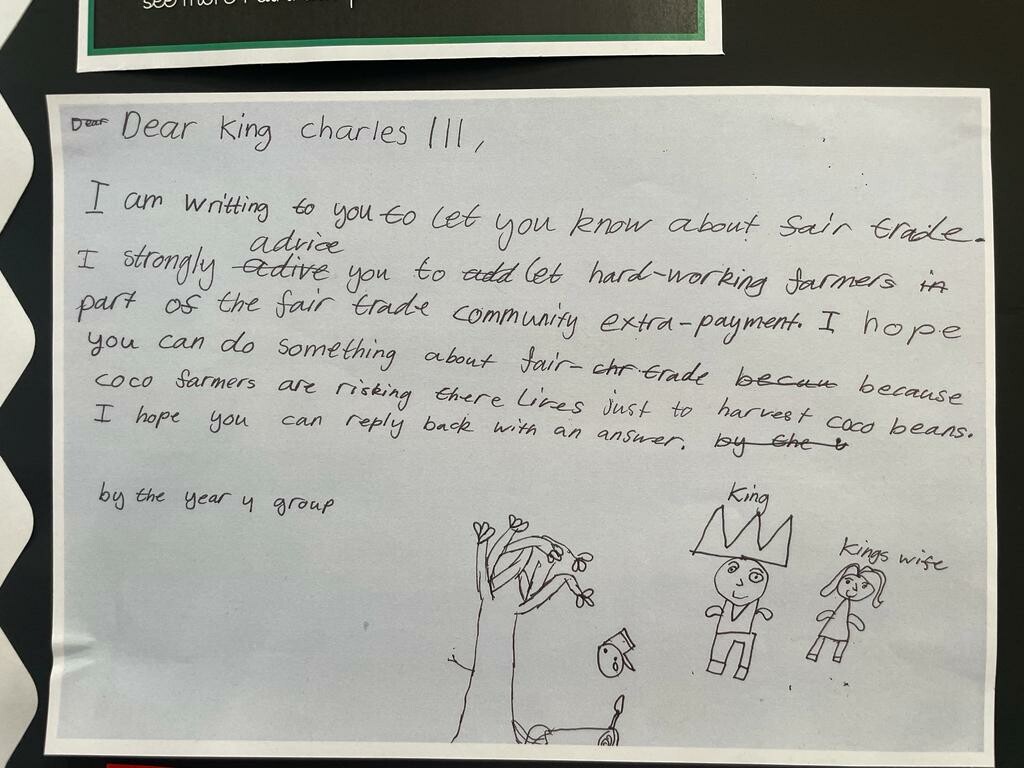 see more
Dear Dear King Charles III,
I am writting to you to let you know about fair trade.
advice
I strongly adive you to add let hard-working farmers in
part of the fair trade community extra-payment. I hope
you can do something about fair-chr trade becau because
coco farmers are risking there lives just to harvest coco beans.
I hope you can reply back with an answer. by the
by the year 4 group
King
Kings wife